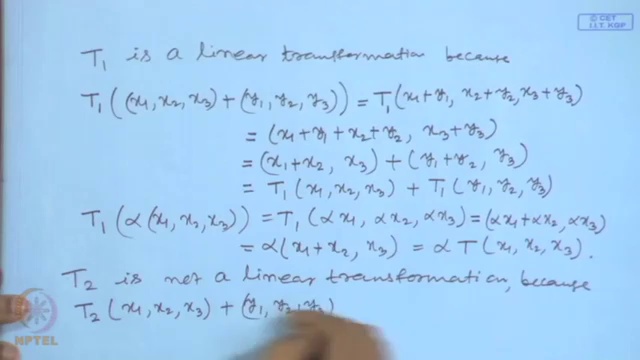 © CET
I.I.T. KGP
T₁ is a linear transformation because
T₁((x₁, x₂, x₃) + (y₁, y₂, y₃)) = T₁(x₁+y₁, x₂+y₂, x₃+y₃)
= (x₁+y₁+x₂+y₂, x₃+y₃)
= (x₁+x₂, x₃) + (y₁+y₂, y₃)
= T₁(x₁, x₂, x₃) + T₁(y₁, y₂, y₃)
T₁(α(x₁, x₂, x₃)) = T₁(αx₁, αx₂, αx₃) = (αx₁+αx₂, αx₃)
= α(x₁+x₂, x₃) = αT(x₁, x₂, x₃).
T₂ is not a linear transformation, because
T₂(x₁, x₂, x₃) + (y₁, y₂+y₃)
NPTEL